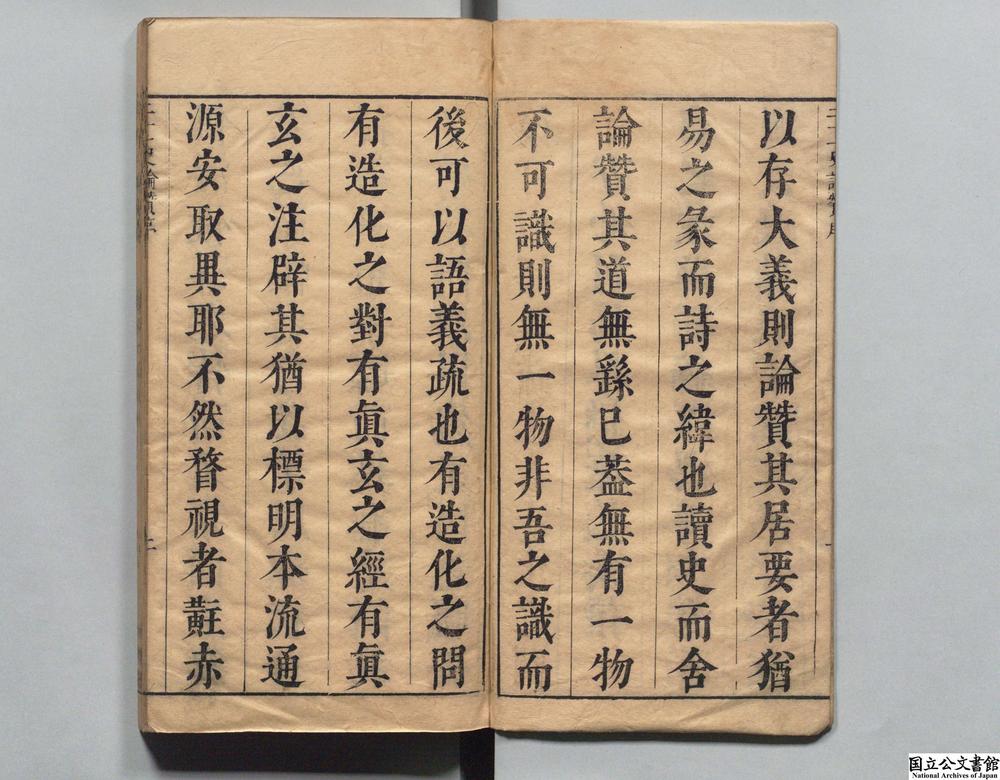 以存大義則論贊其居要者猶
易之彖而詩之緯也讀史而舍
論贊其道無繇已蓋無有一物
不可識則無一物非吾之識而
後可以語義疏也有造化之問
有造化之對有眞玄之經有眞
玄之注辟其猶以標明本流通
源安取異耶不然瞀視者黈赤
国立公文書館
National Archives of Japan